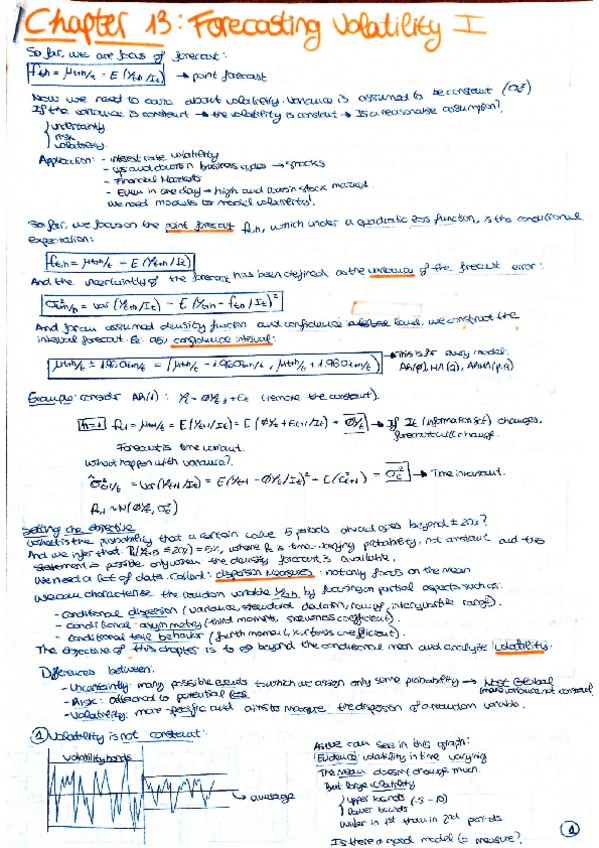 Chapter 13: Forecasting Volatility I
So far, we are focus of forecast:
ft,h = μt+h/t = E(Yt+h/It) → point forecast
Now we need to care about volatility. variance is assumed to be constant (σε²)
If the variance is constant → the volatility is constant → Is a reasonable assumption?
uncertainty
risk
volatility
Application: - interest rate volatility
- ups and down in business cycles → stocks
- Financial Markets
- Even in one day → high and lows in stock market.
We need models to model volatility!
So far, we focus on the point forecast ft,h, which under a quadratic loss function, is the conditional
expectation:
ft,h = μt+h/t = E(Yt+h/It)
And the uncertainty of the forecast has been defined as the variance of the forecast error:
σ²t+h/t = var(Yt+h/It) = E(Yt+h - ft,h/It)²
And for an assumed density function and confidence level, we construct the
interval forecast. Ex: 95% confidence interval:
μt+h/t ± 1.96σt+h/t = (μt+h/t - 1.96σt+h/t, μt+h/t + 1.96σt+h/t) → This is for every model:
AR(p), MA(q), ARMA(p,q)
Example: consider AR(1): Yt = ØYt-1 + Et (remove the constant).
h=1 ft,1 = μt+1/t = E(Yt+1/It) = E(ØYt + Et+1/It) = ØYt → If It (information set) changes,
forecast will change.
Forecast is time variant.
What happen with variance?.
σ²t+1/t = var(Yt+1/It) = E(Yt+1 - ØYt/It)² = E(ε²t+1) = σε² → Time invariant.
ft,1 ~ N(ØYt, σε²)
Setting the objective
What is the probability that a certain value 5 periods ahead goes beyond ± 20%?
And we infer that: Pt(Yt+5 ≤ 20%) = 5%, where Pt is time-varying probability, not constant and this
statement is possible only when the density forecast is available.
We need a lot of data. called: dispersion measures: not only focus on the mean
We can characterise the random variable Yt+h by focusing on partial aspects such as:
- conditional dispersion (variance, standard deviation, range, interquartile range).
- conditional asymmetry (third moments, skewness coefficient).
- conditional tail behavior (fourth moment, kurtosis coefficient).
The objective of this chapter is to go beyond the conditional mean and analyze volatility.
Differences between:
- Uncertainty: many possible events to which we assign only some probability → Most Global
(more, variance not constant)
- Risk: attached to potential loss.
- Volatility: more specific and aims to measure the dispersion of a random variable.
① Volatility is not constant:
volatility bands
average
As we can see in this graph:
Evidence: volatility is time varying
The mean doesn't change much.
But large volatility
upper bounds (-5 - 10)
lower bounds
wider in 1st than in 2nd periods
Is there a good model to measure?
1